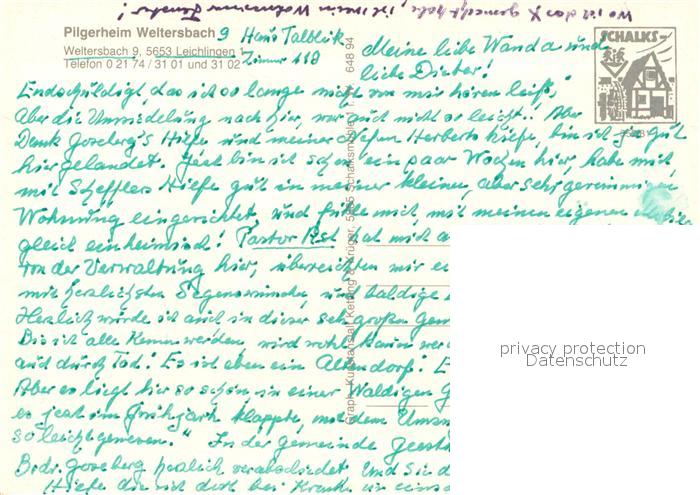 Wo ist das X gemacht habe, ist mein Wohnzimmer Fenster!
Pilgerheim Weltersbach 9 Haus Talblick
Weltersbach 9, 5653 Leichlingen Zimmer 118
Telefon 0 21 74 / 31 01 und 31 02
648 94
SCHALKS-
Meine liebe Wanda und
lieber Dieter!
Endschuldigt, das ich so lange nichts von mir hören ließ,
Aber die Umsiedelung nach hier, war auch nicht so leicht.. Aber
Dank Joseberg's Hilfe und meiner Neffen Herberts Hilfe, bin ich ja gut
hier gelandet. Jezt bin ich schon ein paar Wochen hier, habe mich,
mit Schefflers Hilfe gut in meiner kleinen, aber sehr gereumigen
Wohnung eingerichtet, und fühle mich, mit meinen eigenen
gleich einheimisch! Pastor hat mich
von der Verwaltung hier, überreichten mir
mit herzlichsten Segenswünschen, und baldige
Herzlich würde ich auch in dieser sehr großen Gem
Bis ich alle kennen werde, wird wohl kaum
auch durch Tod! Es ist eben ein Altendorf!
Aber es liegt hier so schön in einer Waldigen
es jezt im Frühjahr klappte, mit dem Umzug
so leicht gewesen." In der Gemeinde Geest
Brdr. Joseberg herzlich verabschiedet. Und Sie
Hilfe die ich dort bei
Graph. Kunstanstalt Ketting & Krüger, 5885 Schalksmühle 1
privacy protection
Datenschutz